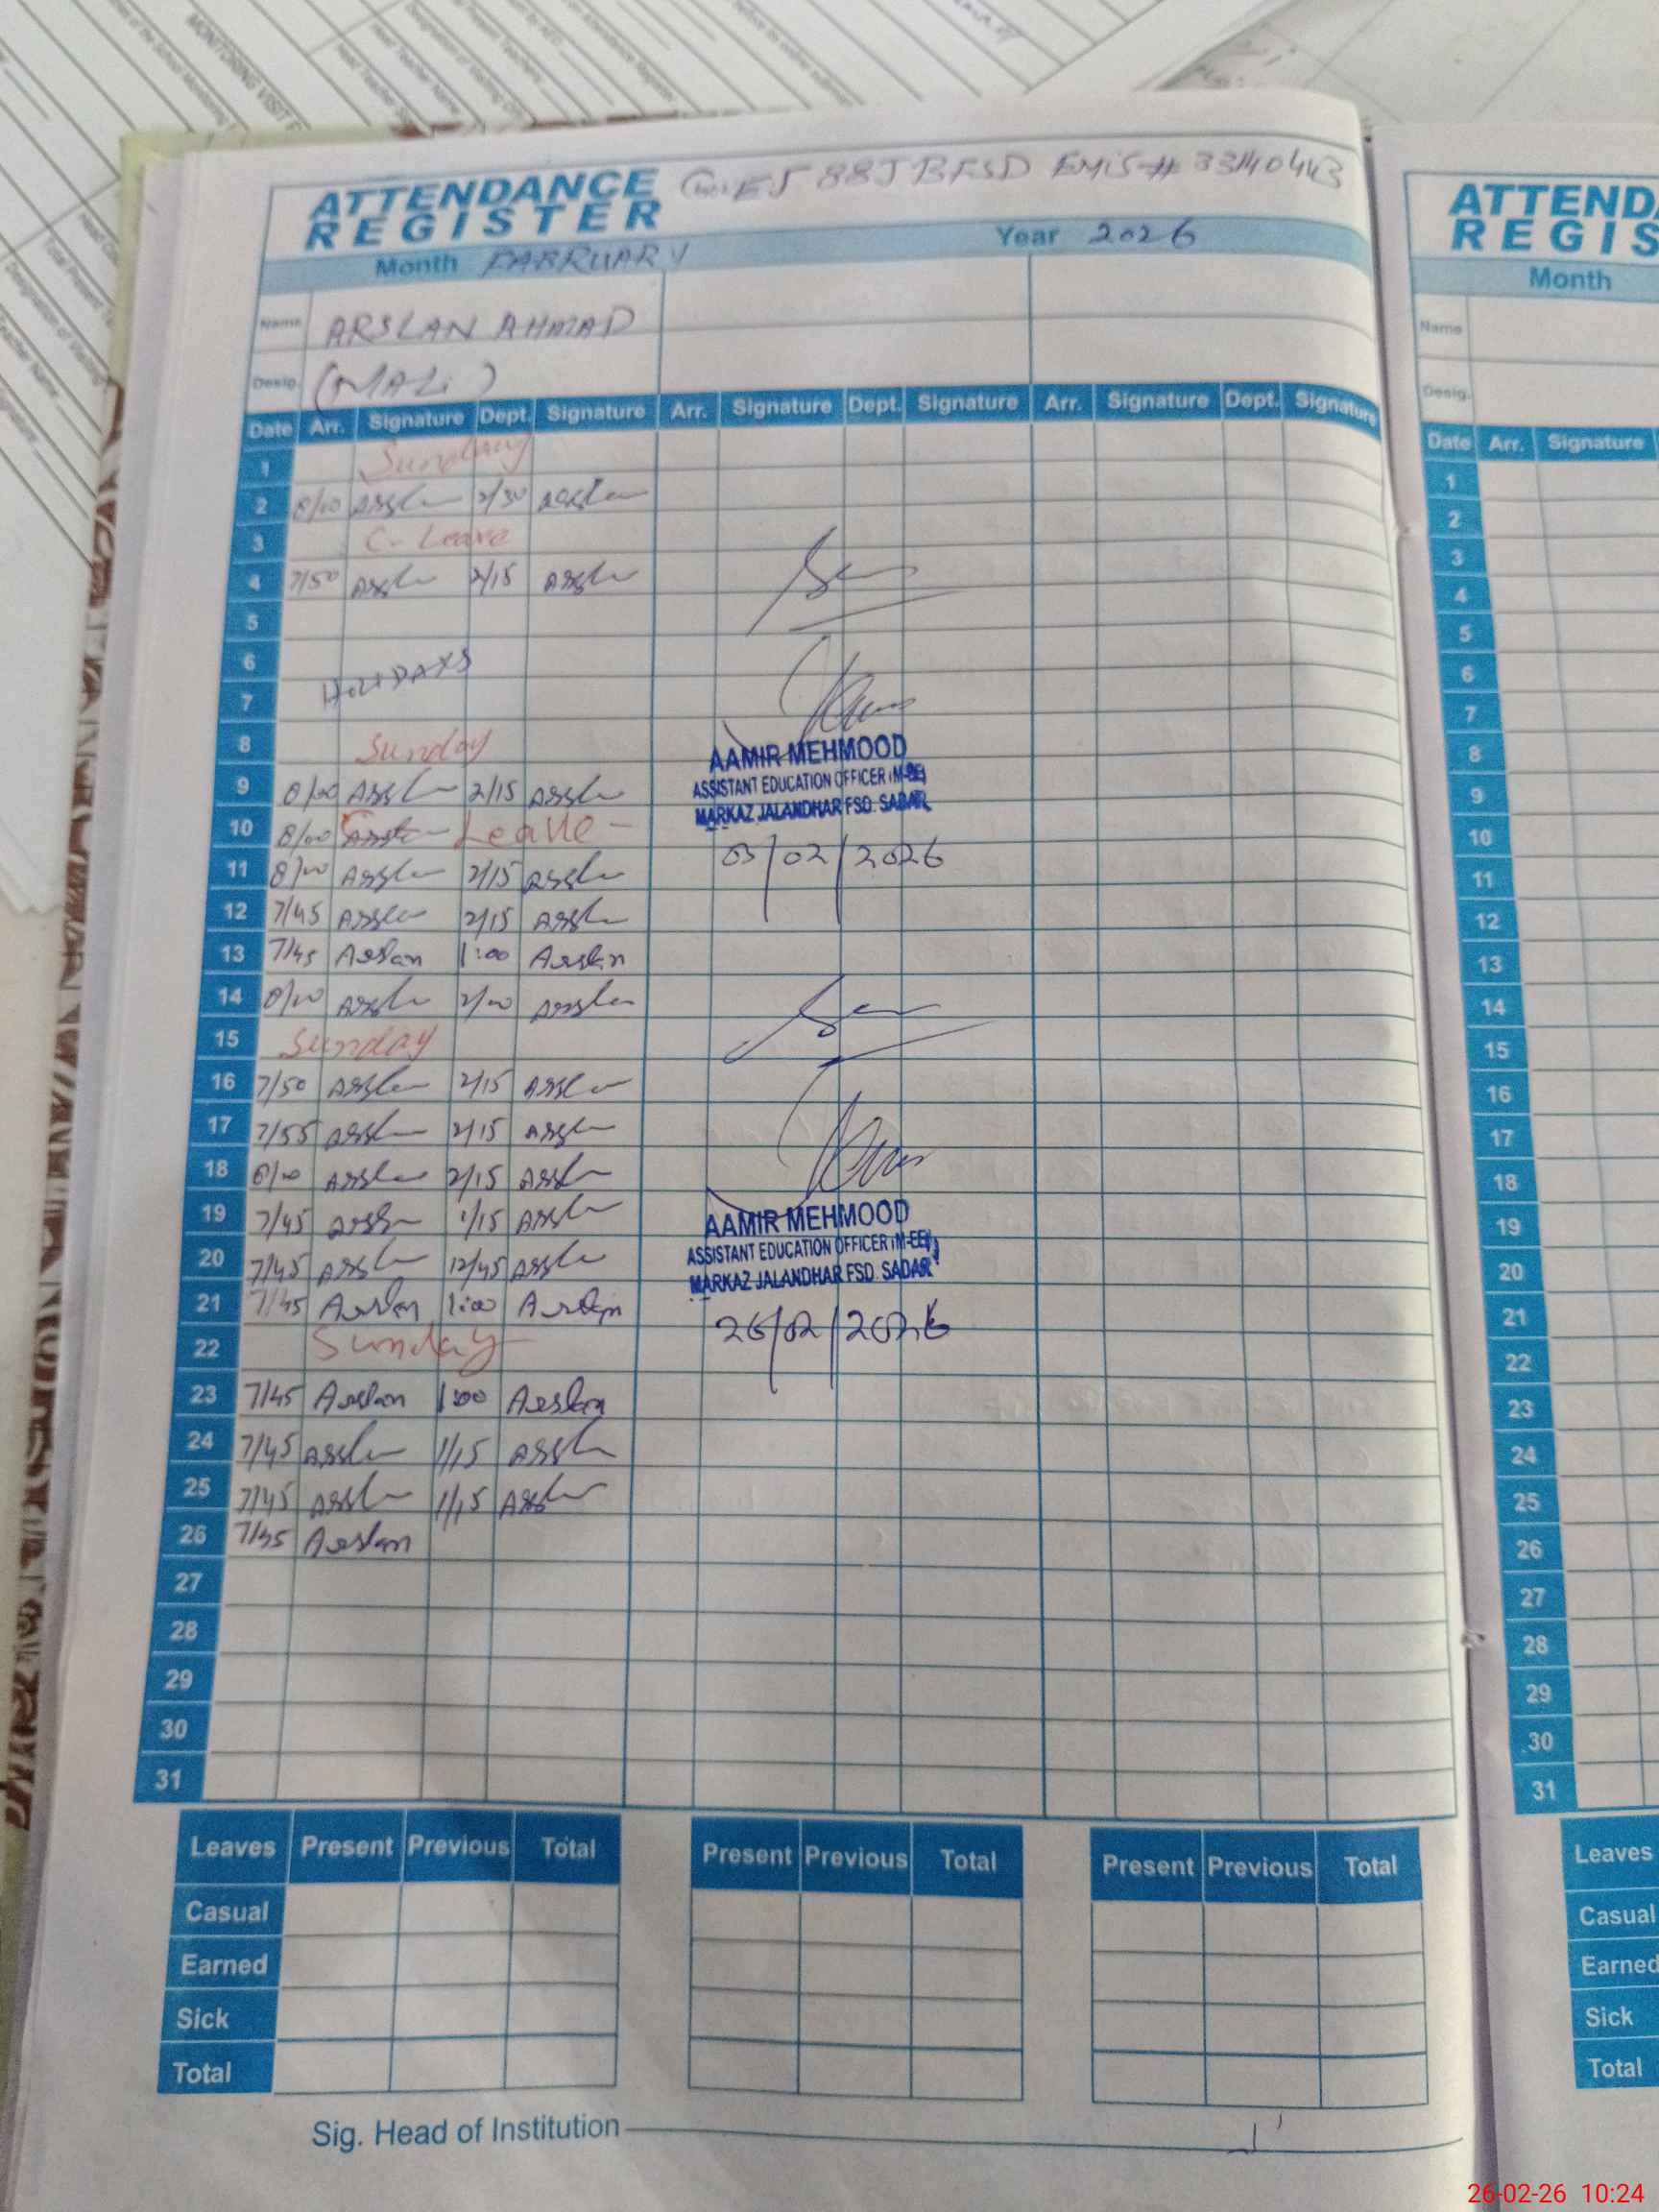 MONITORING VISIT F
ATTENDANCE
REGISTER
88JBFSD EMIS# 33140443
Month FABRUARY Year 2026
Name ARSLAN AHMAD
Desig. (MALi)
Date Arr. Signature Dept. Signature Arr. Signature Dept. Signature Arr. Signature Dept. Signature
1 Sunday
2 8/00 Arslan 2/30 Arslan
3 C- Leave
4 7/50 Arslan 2/15 Arslan
5
6
HOLIDAYS
7
8 Sunday
AAMIR MEHMOOD
ASSISTANT EDUCATION OFFICER (M-EE)
MARKAZ JALANDHAR FSD. SADAR
9 8/00 Arslan 2/15 Arslan
10 8/00 Leave -
03/02/2026
11 8/00 Arslan 2/15 Arslan
12 7/45 Arslan 2/15 Arslan
13 7/45 Arslan 1:00 Arslan
14 8/00 Arslan 2/00 Arslan
15 Sunday
16 7/50 Arslan 2/15 Arslan
17 7/55 Arslan 2/15 Arslan
18 8/00 Arslan 2/15 Arslan
19 7/45 Arslan 1/15 Arslan
AAMIR MEHMOOD
ASSISTANT EDUCATION OFFICER (M-EE)
MARKAZ JALANDHAR FSD. SADAR
20 7/45 Arslan 12/45 Arslan
21 7/45 Arslan 1:00 Arslan
26/02/2026
22 Sunday
23 7/45 Arslan 1:00 Arslan
24 7/45 Arslan 1/15 Arslan
25 7/45 Arslan 1/15 Arslan
26 7/45 Arslan
27
28
29
30
31
Leaves Present Previous Total Present Previous Total Present Previous Total
Casual
Earned
Sick
Total
Sig. Head of Institution
ATTENDA
REGIS
Month
Name
Desig.
Date Arr. Signature
1
2
3
4
5
6
7
8
9
10
11
12
13
14
15
16
17
18
19
20
21
22
23
24
25
26
27
28
29
30
31
Leaves
Casual
Earned
Sick
Total
26-02-26 10:24